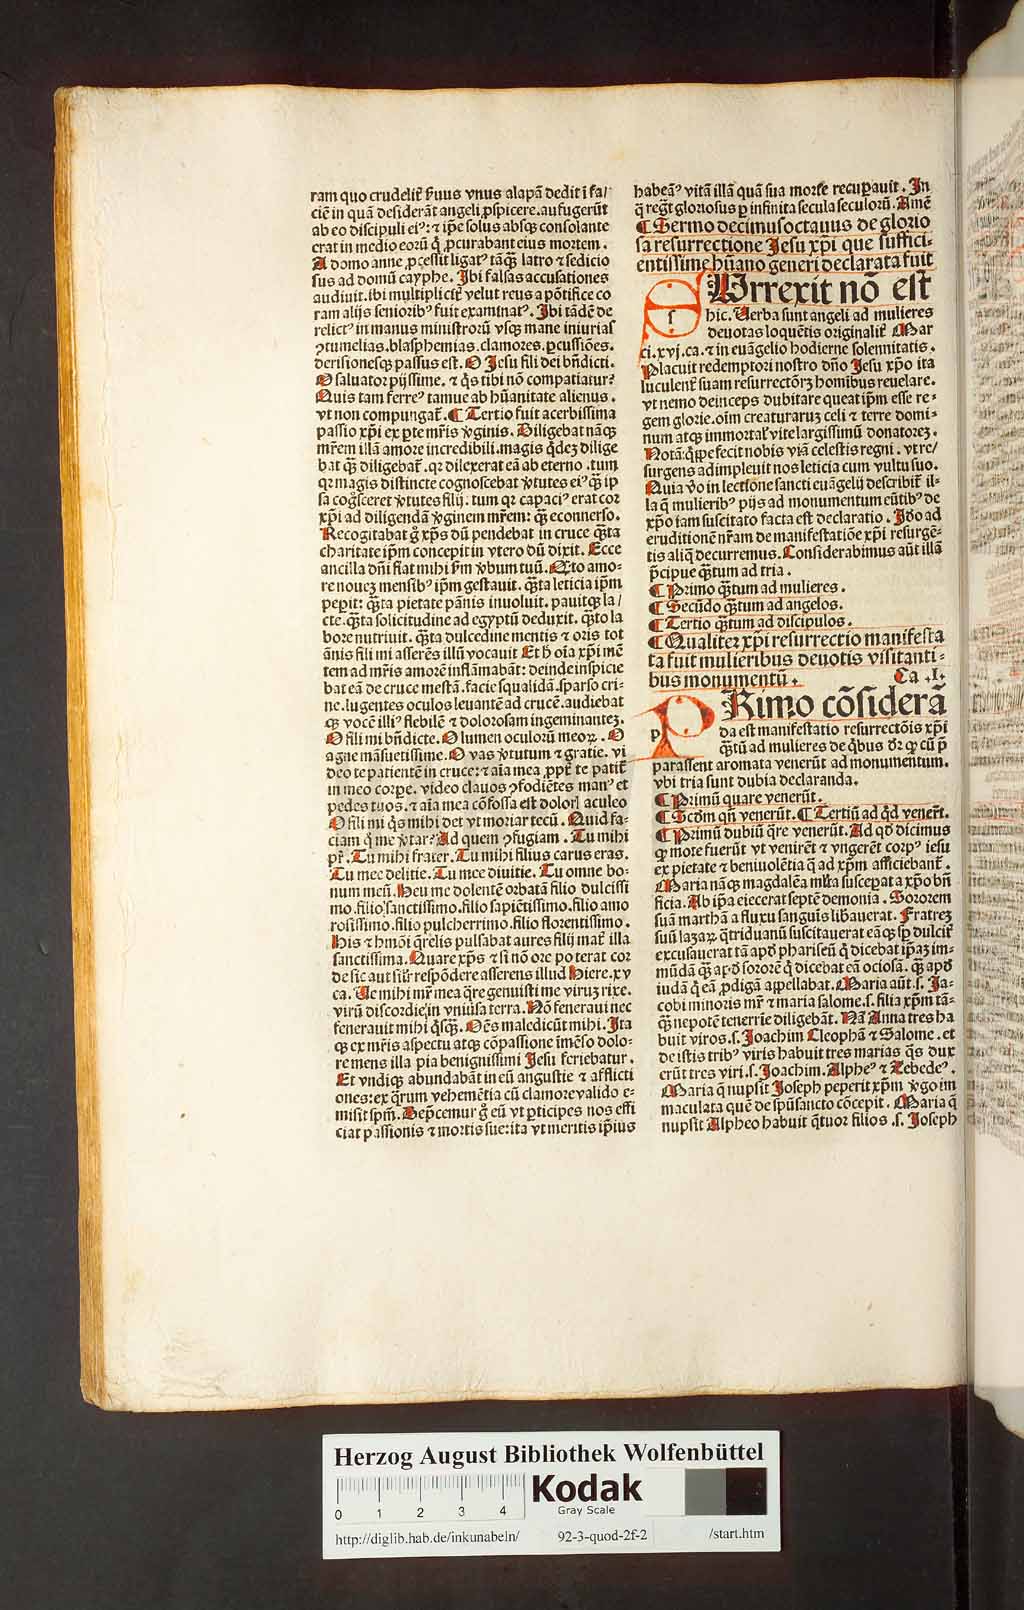 ram quo crudelit᷑ ẜuus vnus alapā dedit ī fa/
ciē in quā desiderāt angeli ꝓspicere. aufugerūt
ab eo discipuli eiꝰ: ⁊ ip̄e solus absqꝫ consolante
erat in medio eorū q̄ ꝓcurabant eius mortem.
A domo anne ꝓcessit ligatꝰ tāqꝫ latro ⁊ sedicio
sus ad domū cayphe. Ibi falsas accusationes
audiuit. ibi multiplicit᷑ velut reus a pōtifice co
ram alijs senioribꝰ fuit examinatꝰ. Ibi tādē de
relictꝰ in manus ministrorū vsqꝫ mane iniurias
ꝯtumelias. blasphemias. clamores. ꝑcussiōes.
derisionesqꝫ passus est. O Iesu fili dei bn̄dicti.
O saluator pijssime. ⁊ q̄s tibi nō compatiatur?
Quis tam ferreꝰ tamue ab hūanitate alienus.
vt non compungat᷑. ¶ Tertio fuit acerbissima
passio xp̄i ex ꝑte mr̄is v̄ginis. Diligebat nāqꝫ
mr̄em illā amore incredibili. magis q̄dē dilige
bat qꝫ diligebat᷑. qꝛ dilexerat eā ab eterno. tum
qꝛ magis distincte cognoscebat v̄tutes eiꝰ qꝫ ip
sa coḡsceret v̄tutes filij. tum qꝛ capaciꝰ erat cor
xp̄i ad diligendā v̄ginem mr̄em: qꝫ econuerso.
Recogitabat g̊ xp̄s dū pendebat in cruce qꝫta
charitate ip̄m concepit in vtero dū dixit. Ecce
ancilla dn̄i fiat mihi ẜm v̄bum tuū. Qꝫto amo-
re nouez mensibꝰ ip̄m gestauit. qꝫta leticia ip̄m
peꝑit: qꝫta pietate pānis inuoluit. pauitqꝫ la/
cte. qꝫta solicitudine ad egyptū deduxit. qꝫto la
bore nutriuit. qꝫta dulcedine mentis ⁊ oris tot
ānis fili mi asserēs illū vocauit Et h̄ oīa xp̄i mē
tem ad mr̄is amorē inflāmabāt: deinde inspicie
bat eā de cruce mestā. facie squalidā. sparso cri-
ne. lugentes oculos leuantē ad crucē. audiebat
qꝫ vocē illiꝰ flebilē ⁊ dolorosam ingeminantez.
O fili mi bn̄dicte. O lumen oculorū meoꝝ. O
agne māsuetissime. O vas v̄tutum ⁊ gratie. vi
deo te patientē in cruce: ⁊ aīa mea ꝓpt᷑ te patit᷑
in meo corpe. video clauos ꝯfodiētes manꝰ et
pedes tuos. ⁊ aīa mea cōfossa est doloꝝ aculeo
O fili mi q̄s mihi det vt moriar tecū. Quid fa-
ciam q̄ me v̄tar? Ad quem ꝯfugiam. Tu mihi
pr̄. Tu mihi frater. Tu mihi filius carus eras.
Tu mee delitie. Tu mee diuitie. Tu omne bo-
num meū. Heu me dolentē orbatā filio dulcissi
mo. filio sanctissimo. filio sapiētissimo. filio amo
rosissimo. filio pulcherrimo. filio florentissimo.
His ⁊ hmōi q̄relis pulsabat aures filij mat᷑ illa
sanctissima. Quare xp̄s ⁊ si nō ore poterat cor
de sic aut sil᷑r respōdere asserens illud Hiere. xv
ca. Ue mihi mr̄ mea q̄re genuisti me viruz rixe.
virū discordie, in vniūsa terra. Nō feneraui nec
fenerauit mihi q̄sqꝫ. Oēs maledicūt mihi. Ita
qꝫ ex mr̄is aspectu atqꝫ cōpassione īmēso dolo-
re mens illa pia benignissimi Iesu feriebatur.
Et vndiqꝫ abundabāt in eū angustie ⁊ afflicti
ones: ex q̄rum vehemētia cū clamore valido e-
misit spm̄. Dep̄cemur g̊ eū vt ꝑticipes nos effi
ciat passionis ⁊ mortis sue: ita vt meritis ip̄ius
habeāꝰ vitā illā quā sua morte recuꝑauit. In
q̄ regt᷑ gloriosus ꝑ infinita secula seculorū. Amē
¶ Sermo decimusoctauus de glorio
sa resurrectione Iesu xp̄i que suffici-
entissime hūano generi declarata fuit
SUrrexit nō est
hic. Uerba sunt angeli ad mulieres
deuotas loquētis originalit᷑ Mar
ci. xvj. ca. ⁊ in euāgelio hodierne solennitatis.
Placuit redemptori nostro dn̄o Iesu xp̄o ita
luculent᷑ suam resurrectōeꝫ hom̄ibus reuelare.
vt nemo deinceps dubitare queat ip̄m esse re-
gem glorie. oīm creaturaruz celi ⁊ terre domi-
num atqꝫ immortal᷑ vite largissimū donatoreꝫ.
Notā: q̄ppe fecit nobis viā celestis regni. vt re/
surgens adimpleuit nos leticia cum vultu suo.
Quia v̊o in lectione sancti euāgelij describit᷑ il-
la q̄ mulieribꝰ pijs ad monumentum eūtibꝰ de
xp̄o iam suscitato facta est declaratio. Idō ad
eruditionē nr̄am de manifestatiōe xp̄i resurgē-
tis aliq̄ decurremus. Considerabimus aūt illā
p̄cipue qꝫtum ad tria.
¶ Primo qꝫtum ad mulieres.
¶ Secūdo qꝫtum ad angelos.
¶ Tertio qꝫtum ad discipulos.
¶ Qualiter xp̄i resurrectio manifesta
ta fuit mulieribus deuotis visitanti-
bus monumentū. Ca .I.
PRimo cōsiderā
da est manifestatio resurrectōis xp̄i
qꝫtū ad mulieres de q̄bus dr̄ qꝫ cū p̄
parassent aromata venerūt ad monumentum.
vbi tria sunt dubia declaranda.
¶ Primū quare venerūt.
¶ Scd̄m qn̄ venerūt. ¶ Tertiū ad qd̄ venert᷑.
¶ Primū dubiū q̄re venerūt. Ad qd̄ dicimus
qꝫ more fuerūt vt venirēt ⁊ vngerēt corpꝰ iesu
ex pietate ⁊ beniuolētia q̄ ad xp̄m afficiebant᷑.
Maria nāqꝫ magdalēa ml̄ta susceꝑat a xp̄o bn̄
ficia. Ab ip̄a eiecerat septē demonia. Sororem
suā marthā a fluxu sanguīs libauerat. Fratrez
suū lazaꝝ q̄triduanū suscitauerat eāqꝫ sp̄ dulcit᷑
excusauerat tā apd̄ phariseū q̄ dicebat ip̄aꝫ im-
mūdā qꝫ apd̄ sororē q̄ dicebat eā ociosā. qꝫ apd̄
iudā q̄ eā ꝓdigā appellabat. Maria aūt. s. Ia-
cobi minoris mr̄ ⁊ maria salome. s. filia xp̄m tā-
qꝫ nepotē tenerrīe diligebāt. Nā Anna tres ha
buit viros. s. Ioachim Cleophā ⁊ Salome. et
de istis tribꝰ viris habuit tres marias q̄s dux
erūt tres viri. s. Ioachim. Alpheꝰ ⁊ Zebedeꝰ.
Maria q̄ nupsit Ioseph peperit xp̄m v̄go im
maculata quē de spūsancto cōcepit. Maria q̄
nupsit Alpheo habuit q̄tuor filios .s. Ioseph
Herzog August Bibliothek Wolfenbüttel
0 1 2 3 4
Kodak
Gray Scale
http://diglib.hab.de/inkunabeln/ 92-3-quod-2f-2 /start.htm